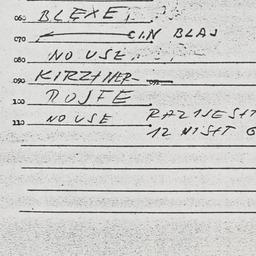 060 BLEXET
070 CIN BLAS
080 NO USE
090 KIRZHNER
100 DOJFE
110 NO USE RAZIJESIT
12 NISHT